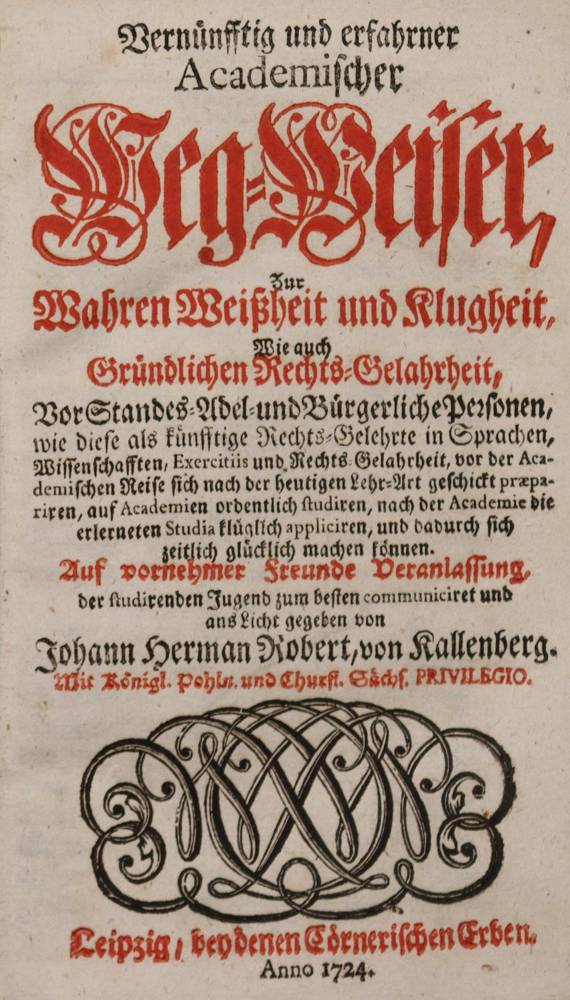 Vernünfftig und erfahrner
Academischer
Weg-Weiser,
Zur
Wahren Weißheit und Klugheit,
Wie auch
Gründlichen Rechts-Gelahrheit,
Vor Standes-Adel-und Bürgerliche Personen,
wie diese als künfftige Rechts-Gelehrte in Sprachen,
Wissenschafften, Exercitiis und Rechts-Gelahrheit, vor der Aca-
demischen Reise sich nach der heutigen Lehr-Art geschickt præpa-
riren, auf Academien ordentlich studiren, nach der Academie die
erlerneten Studia klüglich appliciren, und dadurch sich
zeitlich glücklich machen können.
Auf vornehmer Freunde Veranlassung,
der studirenden Jugend zum besten communiciret und
ans Licht gegeben von
Johann Herman Robert, von Kallenberg.
Mit Königl. Pohln. und Churfl. Sächs. PRIVILEGIO.
Leipzig, bey denen Cörnerischen Erben.
Anno 1724.